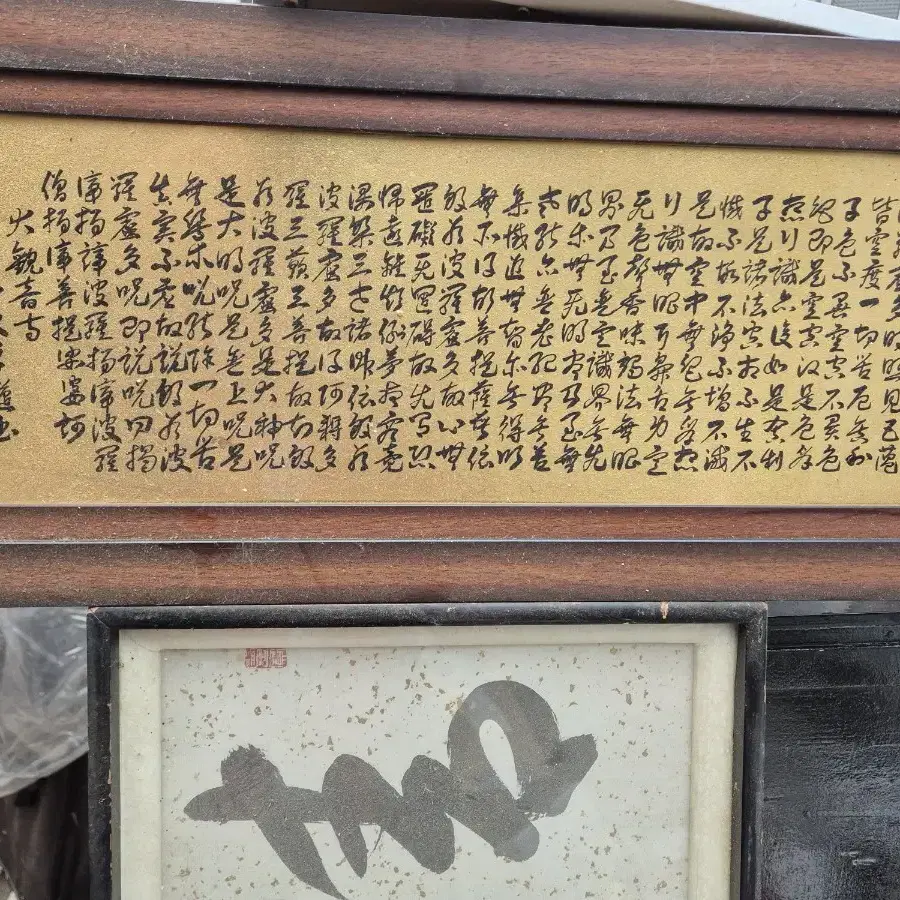 多時照見五蘊
皆空度一切苦厄舍利
子色不異空空不異色
色即是空空即是色受
想行識亦復如是舍利
子是諸法空相不生不
滅不垢不淨不增不減
是故空中無色無受想
行識無眼耳鼻舌身意
無色聲香味觸法無眼
界乃至無意識界無無
明亦無無明盡乃至無
老死亦無老死盡無苦
集滅道無智亦無得以
無所得故菩提薩埵依
般若波羅蜜多故心無
罣礙無罣礙故無有恐
怖遠離顛倒夢想究竟
涅槃三世諸佛依般若
波羅蜜多故得阿耨多
羅三藐三菩提故知般
若波羅蜜多是大神呪
是大明呪是無上呪是
無等等呪能除一切苦
真實不虛故說般若波
羅蜜多呪即說呪曰揭
諦揭諦波羅揭諦波羅
僧揭諦菩提娑婆訶
大觀音寺